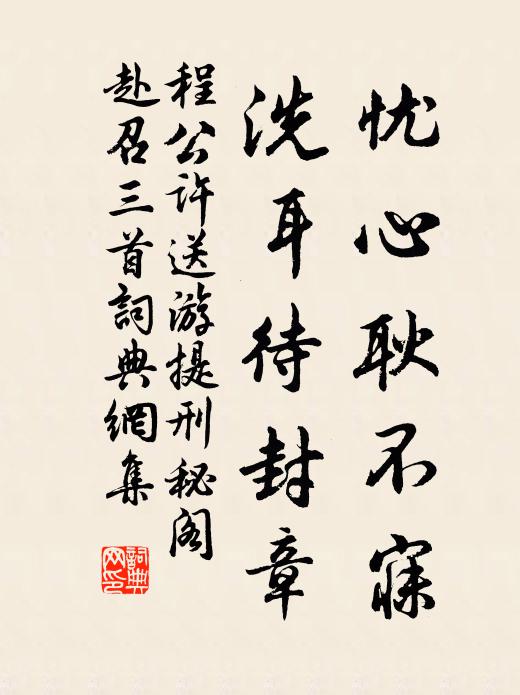 忧心耿不寐
洗耳待封章
程公许送游提刑秘阁
赴召三首詞典網集
詞典
网印